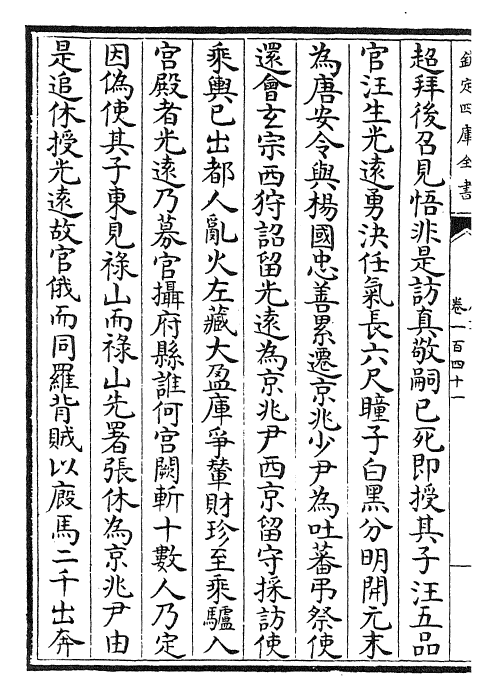 欽定四庫全書
卷一百四十一
超拜後召見悟非是訪真敬嗣已死即授其子汪五品
官汪生光遠勇決任氣長六尺瞳子白黑分明開元末
為唐安令與楊國忠善累遷京兆少尹為吐蕃弔祭使
還會玄宗西狩詔留光遠為京兆尹西京留守採訪使
乘輿已出都人亂火左藏大盈庫爭輦財珍至乘驢入
宮殿者光遠乃募官攝府縣誰何宮闕斬十數人乃定
因偽使其子東見祿山而祿山先署張休為京兆尹由
是追休授光遠故官俄而同羅背賊以廐馬二千出奔